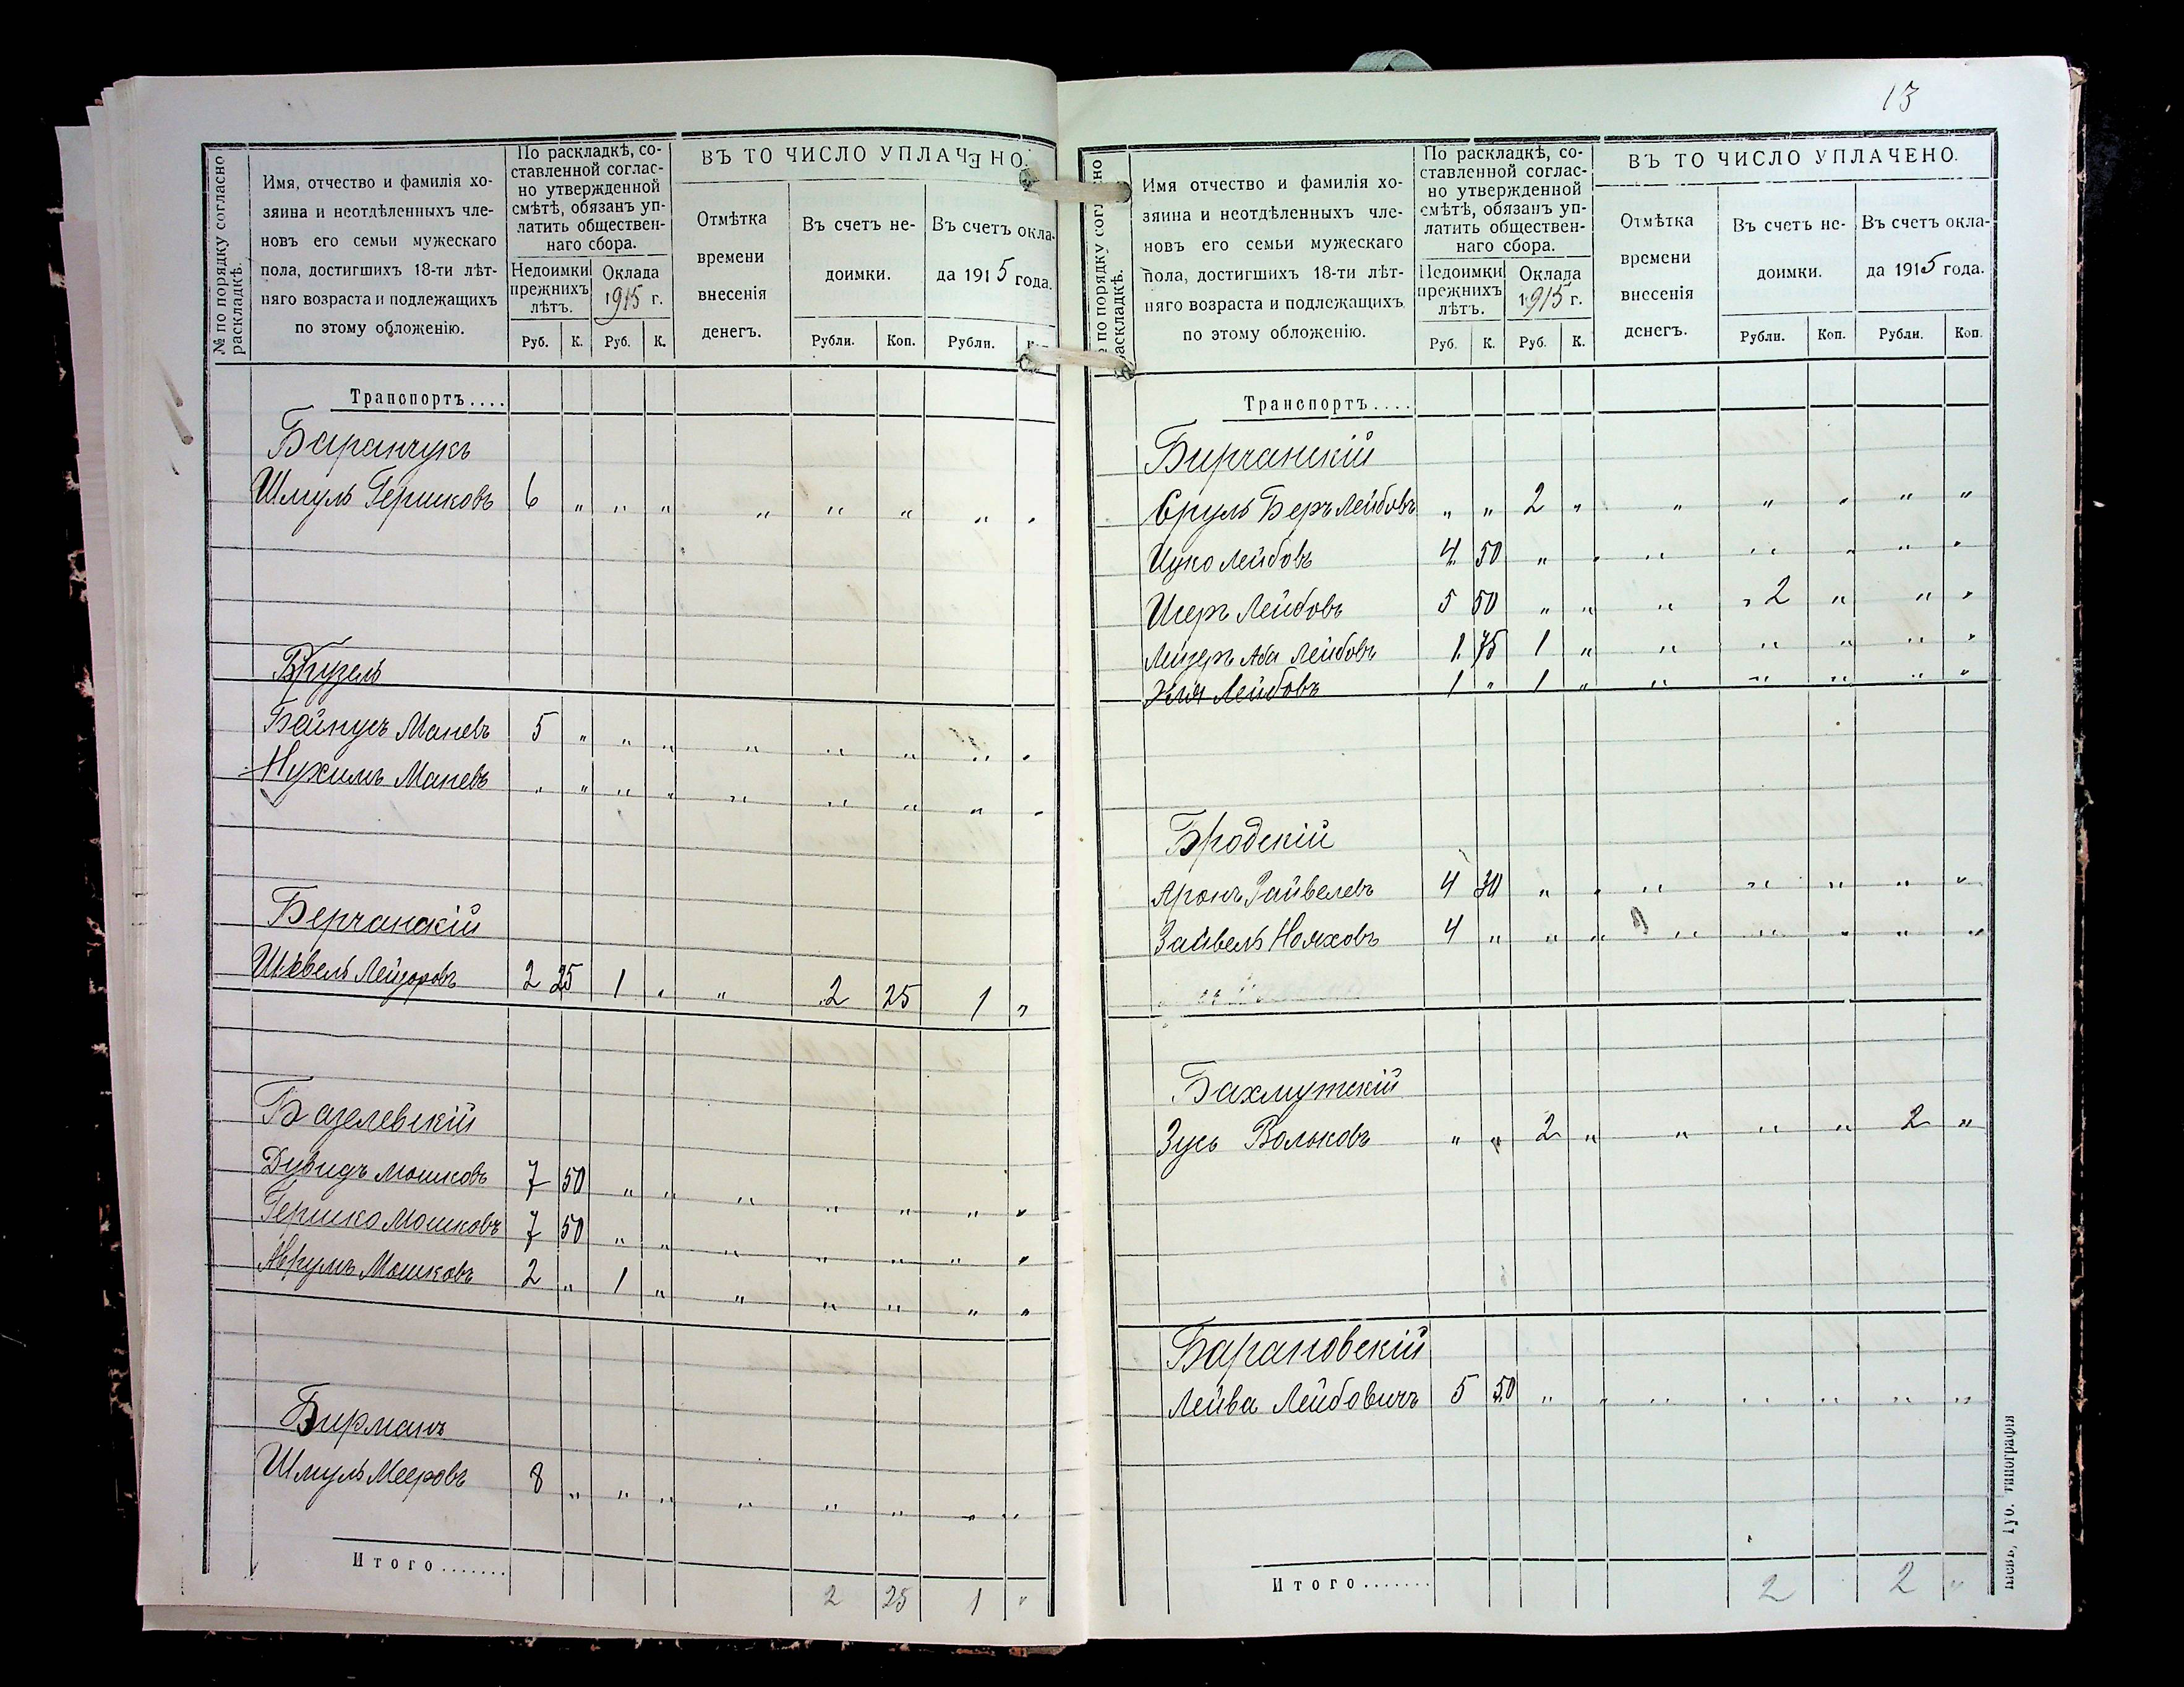 13
№ по порядку согласно раскладкѣ.
Имя, отчество и фамилія хо-
зяина и неотдѣленныхъ чле-
новъ его семьи мужескаго
пола, достигшихъ 18-ти лѣт-
няго возраста и подлежащихъ
по этому обложенію.
По раскладкѣ, со-
ставленной соглас-
но утвержденной
смѣтѣ, обязанъ уп-
латить обществен-
наго сбора.
Недоимки прежнихъ лѣтъ.
Оклада 1915 г.
Руб. К. Руб. К.
ВЪ ТО ЧИСЛО УПЛАЧЕНО.
Отмѣтка
времени
внесенія
денегъ.
Въ счетъ не-
доимки.
Въ счетъ окла-
да 1915 года.
Рубли. Коп. Рубли.
Транспортъ....
Баранчукъ
Шмуль Гершковъ 6 " " " " " " " "
Брузель
Байнусъ Маневъ 5 " " " " " " " "
Нухимъ Маневъ " " " " " " " " "
Берчанскій
Шевель Лейзоровъ 2 25 1 " " 2 25 1 "
Базелевскій
Дувидъ Мошковъ 7 50 " " " " " " "
Гершко Мошковъ 7 50 " " " " " " "
Аврумъ Мошковъ 2 " 1 " " " " " "
Бирманъ
Шмуль Мееровъ 8 " " " " " " " "
Итого....... 2 25 1 "
№ по порядку согласно раскладкѣ.
Имя отчество и фамилія хо-
зяина и неотдѣленныхъ чле-
новъ его семьи мужескаго
пола, достигшихъ 18-ти лѣт-
няго возраста и подлежащихъ
по этому обложенію.
По раскладкѣ, со-
ставленной соглас-
но утвержденной
смѣтѣ, обязанъ уп-
латить обществен-
наго сбора.
Недоимки прежнихъ лѣтъ.
Оклада 1915 г.
Руб. К. Руб. К.
ВЪ ТО ЧИСЛО УПЛАЧЕНО.
Отмѣтка
времени
внесенія
денегъ.
Въ счетъ не-
доимки.
Въ счетъ окла-
да 1915 года.
Рубли. Коп. Рубли. Коп.
Транспортъ....
Бирчанскій
Сруль Беръ Лейбовъ " " 2 " " " " " "
Ицко Лейбовъ 4 50 " " " " " " "
Шеръ Лейбовъ 5 50 " " " 2 " " "
Лейзеръ Аба Лейбовъ 1 75 1 " " " " " "
Хаим Лейбовъ 1 " 1 " " " " " "
Бродскій
Аронъ Зайвелевъ 4 30 " " " " " " "
Зайвель Номховъ 4 " " " " " " " "
Бахмутскій
Зусь Вольковъ " " 2 " " " " 2 "
Барановскій
Лейва Лейбовичъ 5 50 " " " " " " "
Итого....... 2 2 "
Кіевъ, Губ. типографія